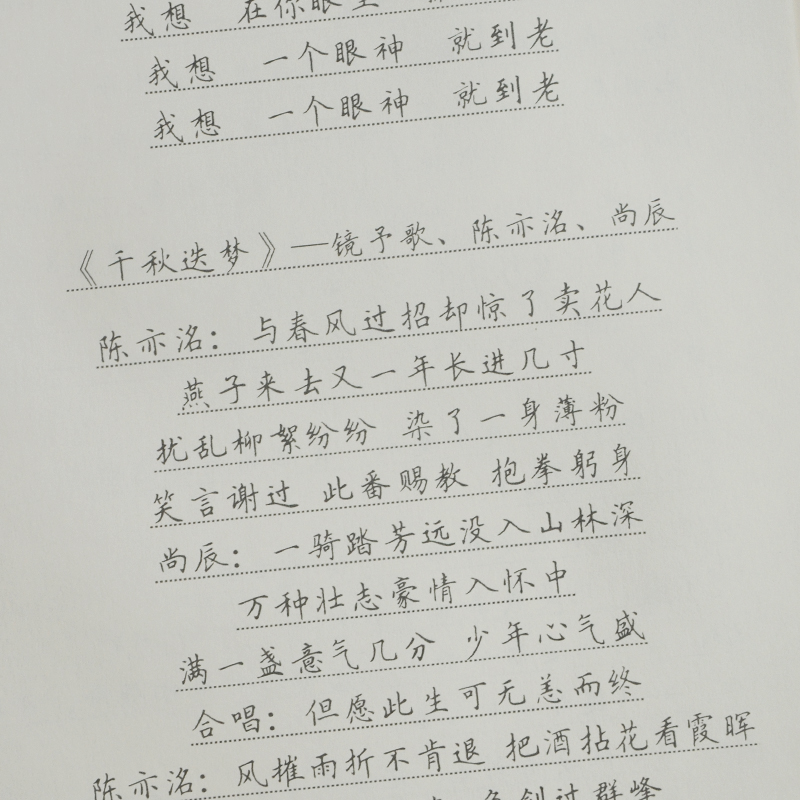 我想 在你眼里
我想 一个眼神 就到老
我想 一个眼神 就到老
《千秋迭梦》—镜予歌、陈亦洺、尚辰
陈亦洺：与春风过招却惊了卖花人
燕子来去又一年长进几寸
扰乱柳絮纷纷 染了一身薄粉
笑言谢过 此番赐教 抱拳躬身
尚辰：一骑踏芳远没入山林深
万种壮志豪情入怀中
满一盏意气几分 少年心气盛
合唱：但愿此生可无恙而终
陈亦洺：风摧雨折不肯退 把酒拈花看霞晖
剑过群峰